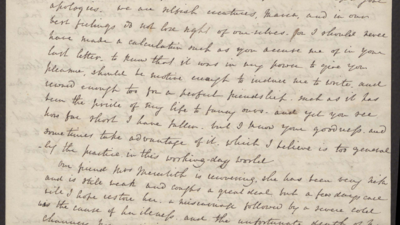 apologies. we are selfish creatures, Maria, and in our
best feelings do not lose sight of ourselves. for I should never
have made a calculation such as you accuse me of in your
last letter. to know that it was in my power to give you
pleasure, should be motive enough to induce me to write, and
reward enough too for a perfect friendship. such as it has
been the pride of my life to fancy ours. and yet you see
how far short I have fallen. but I know your goodness. and
sometimes take advantage of it. which I believe is too general
-ly the practice in this working-day world
My friend Mrs Meredith is recovering, she has been very sick
and is still weak and coughs a great deal, but a few days care
will I hope restore her. a miscarriage followed by a severe cold
was the cause of her illness. and the unfortunate death of